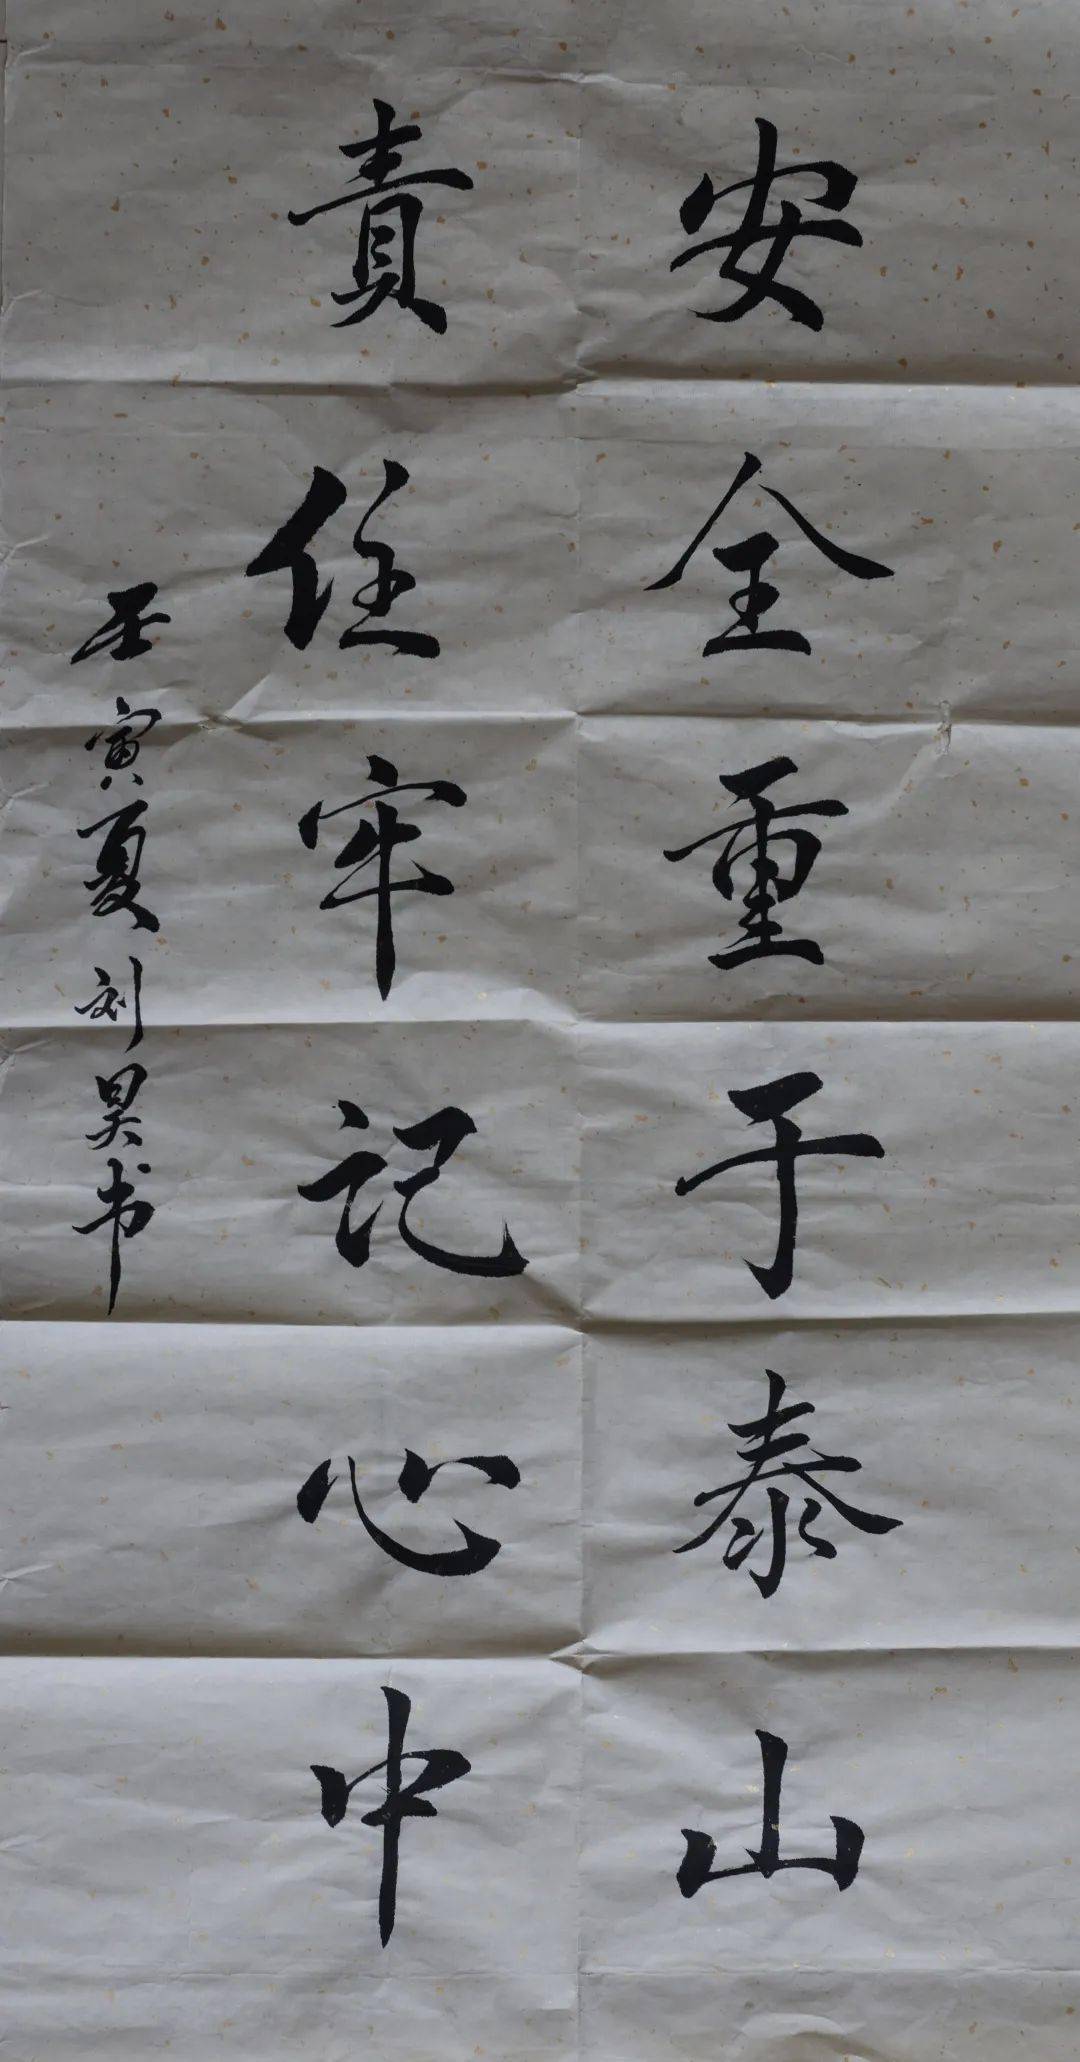 安全重于泰山
責任牢记心中
壬寅夏刘昊书